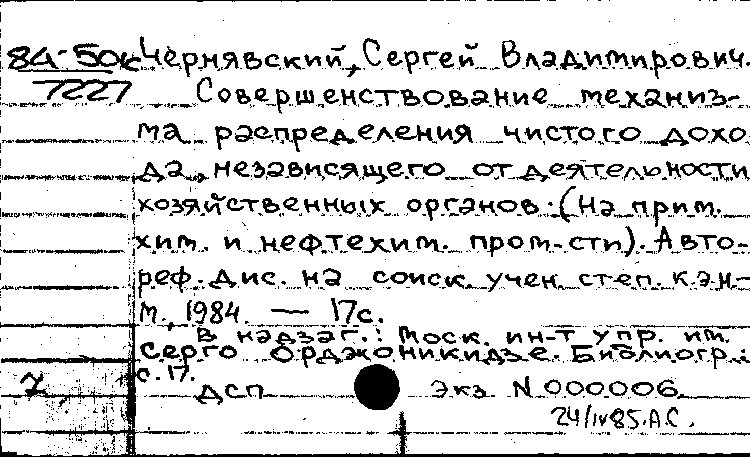 8д-50к Чернявский, Сергей Владимирович.
7227 Совершенствование механиз-
ма распределения чистого дохо
да, независящего от деятельности
хозяйственных органов. (На прим.
хим. и нефтехим. пром-сти). Авто-
реф. Дис. на соиск. учен. степ. к.э.н-
М., 1984. — 17с.
В надзаг.: Моск. ин-т упр. им.
Серго Орджоникидзе. Библиогр.:
с. 17.
ДСП Экз N 000006
24/IV85.А.С.